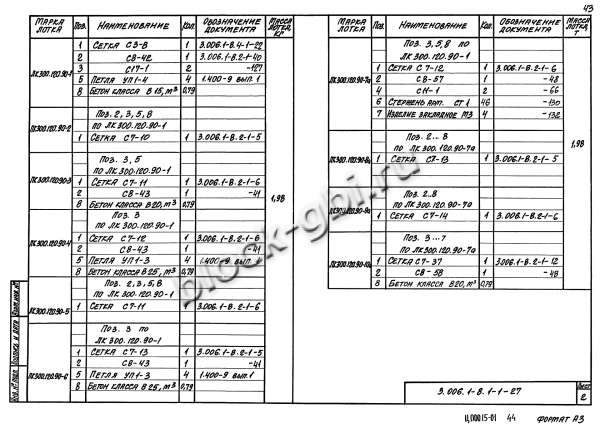 43
МАРКА ЛОТКА | ПОЗ. | НАИМЕНОВАНИЕ | КОЛ. | ОБОЗНАЧЕНИЕ ДОКУМЕНТА | МАССА ЛОТКА, КГ
ЛК300.120.90-1
1 СЕТКА С3-8 1 3.006.1-8.4-1-22
2 С8-42 1 3.006.1-8.2-1-40
3 С17-1 2 -127
5 ПЕТЛЯ УП1-4 4 1.400-9 ВЫП.1
8 БЕТОН КЛАССА В15, М³ 0,79
ЛК300.120.90-2
ПОЗ. 2, 3, 5, 8
ПО ЛК300.120.90-1
1 СЕТКА С7-10 1 3.006.1-8.2-1-5
ЛК300.120.90-3
ПОЗ. 3, 5
ПО ЛК300.120.90-1
1 СЕТКА С7-11 1 3.006.1-8.2-1-6
2 С8-43 1 -41
8 БЕТОН КЛАССА В20, М³ 0,79
1,98
ЛК300.120.90-4
ПОЗ. 3
ПО ЛК300.120.90-1
1 СЕТКА С7-12 1 3.006.1-8.2-1-6
2 С8-43 1 -41
5 ПЕТЛЯ УП1-3 4 1.400-9 ВЫП.1
8 БЕТОН КЛАССА В25, М³ 0,79
ЛК300.120.90-5
ПОЗ. 2, 3, 5, 8
ПО ЛК300.120.90-1
1 СЕТКА С7-11 1 3.006.1-8.2-1-6
ЛК300.120.90-6
ПОЗ. 3 ПО
ЛК300.120.90-1
1 СЕТКА С7-13 1 3.006.1-8.2-1-5
2 С8-43 1 -41
5 ПЕТЛЯ УП1-3 4 1.400-9 ВЫП.1
8 БЕТОН КЛАССА В25, М³ 0,79
МАРКА ЛОТКА | ПОЗ. | НАИМЕНОВАНИЕ | КОЛ. | ОБОЗНАЧЕНИЕ ДОКУМЕНТА | МАССА ЛОТКА, Т
ЛК300.120.90-7а
ПОЗ. 3, 5, 8 ПО
ЛК300.120.90-1
1 СЕТКА С7-12 1 3.006.1-8.2-1-6
2 С8-57 1 -48
4 С11-1 2 -66
6 СТЕРЖЕНЬ АРМ. СТ1 46 -130
7 ИЗДЕЛИЕ ЗАКЛАДНОЕ М3 4 -132
1,98
ПОЗ. 2...8
ПО ЛК300.120.90-7а
1 СЕТКА С7-13 1 3.006.1-8.2-1-5
ЛК300.120.90-9а
ПОЗ. 2..8
ПО ЛК300.120.90-7а
1 СЕТКА С7-14 1 3.006.1-8.2-1-6
ЛК300.120.90-10а
ПОЗ. 3...7
ПО ЛК300.120.90-7а
1 СЕТКА С7-37 1 3.006.1-8.2-1-12
2 С8-58 1 -48
8 БЕТОН КЛАССА В20, М³ 0,79
block-gbi.ru
3.006.1-8.1-1-27
ЛИСТ
2
Ц00015-01 44 ФОРМАТ А3